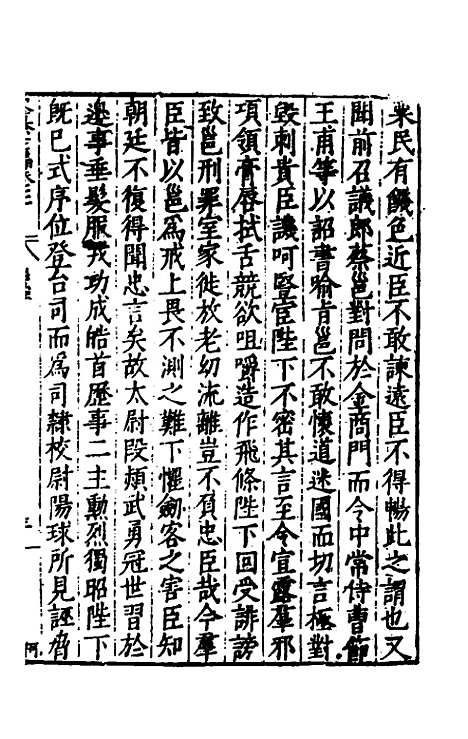 粟民有饑色近臣不敢諫遠臣不得暢此之謂也又
聞前召議郎蔡邕對問於金商門而令中常侍曹節
王甫等以詔書喻肯邕不敢懷道迷國而切言極對
毀刺貴臣譏呵豎宦陛下不密其言至令宣露羣邪
項領膏唇拭舌競欲咀嚼造作飛條陛下回受誹謗
致邕刑罪室家徙放老幼流離豈不負忠臣哉今羣
臣皆以邕爲戒上畏不測之難下懼劒客之害臣知
朝廷不復得聞忠言矣故太尉段熲武勇冠世習於
邊事垂髮服戎功成皓首歷事二主勳烈獨昭陛下
旣已式序位登台司而爲司隸校尉陽球所見誣脅